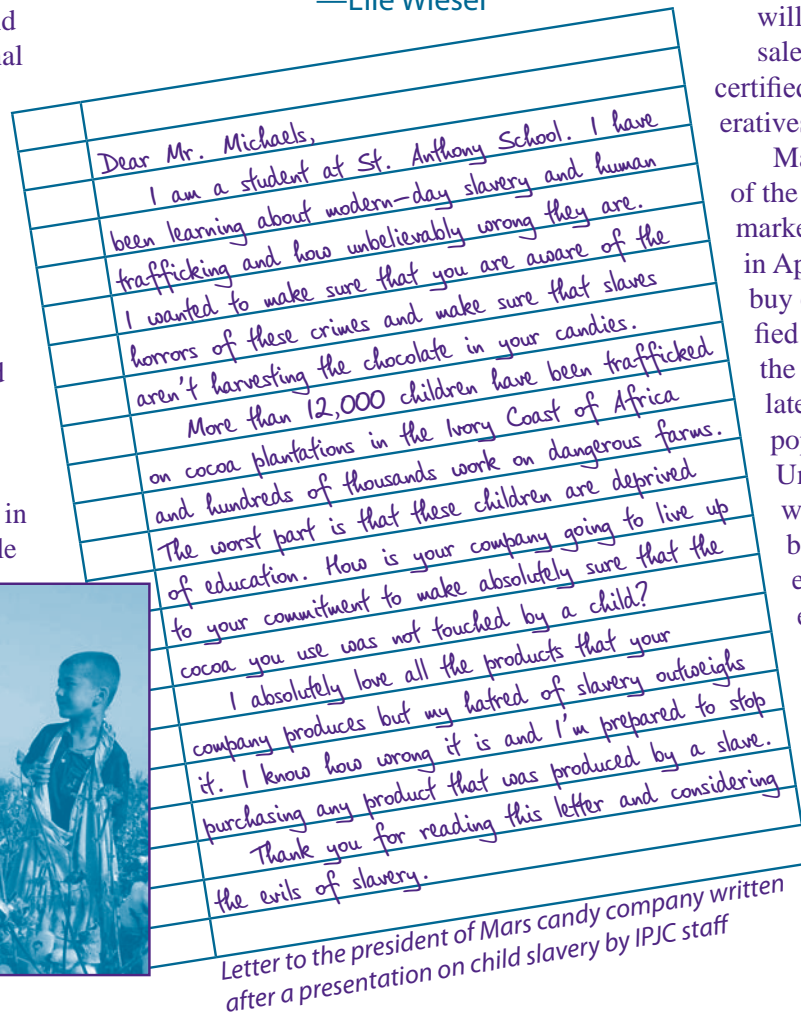 —Elie Wiesel
Dear Mr. Michaels,
I am a student at St. Anthony School. I have
been learning about modern-day slavery and human
trafficking and how unbelievably wrong they are.
I wanted to make sure that you are aware of the
horrors of these crimes and make sure that slaves
aren't harvesting the chocolate in your candies.
More than 12,000 children have been trafficked
on cocoa plantations in the Ivory Coast of Africa
and hundreds of thousands work on dangerous farms.
The worst part is that these children are deprived
of education. How is your company going to live up
to your commitment to make absolutely sure that the
cocoa you use was not touched by a child?
I absolutely love all the products that your
company produces but my hatred of slavery outweighs
it. I know how wrong it is and I'm prepared to stop
purchasing any product that was produced by a slave.
Thank you for reading this letter and considering
the evils of slavery.
Letter to the president of Mars candy company written
after a presentation on child slavery by IPJC staff
in
will
sale
certified
of the
marke
in Ap
buy
fied
the
late